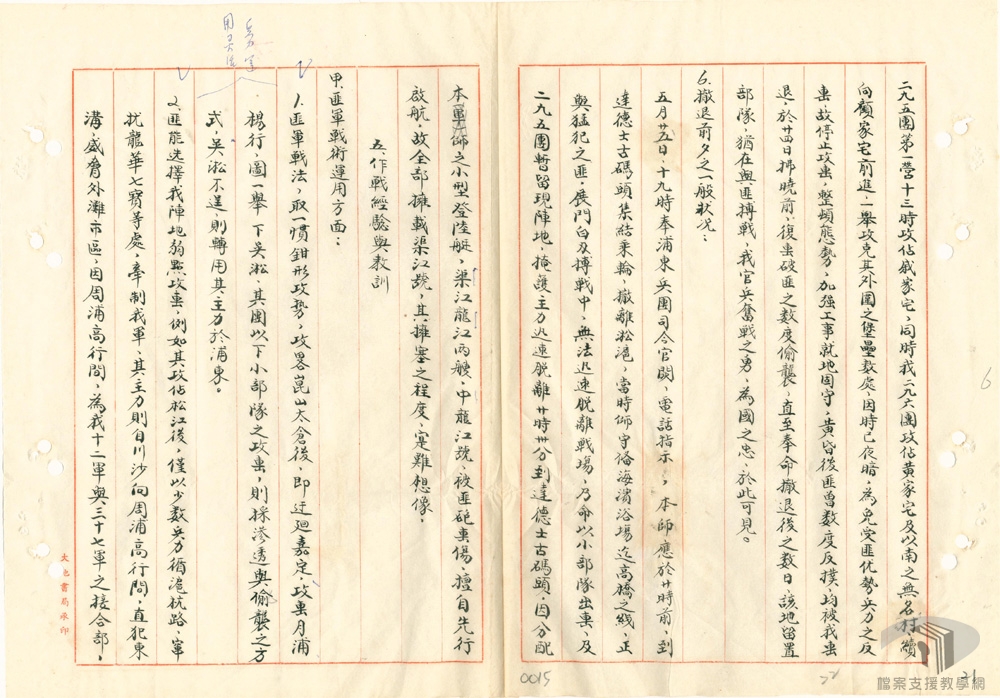 二九五團第二營十三時攻佔戚家宅，同時我二九六團攻佔黃家宅及以南之無名村續
向顧家宅前進，一舉攻克其外圍之堡壘數處，因時已夜暗，為免受匪優勢兵力之反
擊，故停止攻擊，整頓態勢，加強工事就地固守，黃昏後匪曾數度反撲，均被我擊
退，於廿四日拂曉前，復擊破匪之數度偷襲，直至奉命撤退後之數日，該地留置
部隊，猶在與匪搏戰，我官兵奮戰之勇，為國之忠，於此可見。
6.撤退前夕之一般狀況：
五月廿五日，十九時奉浦東兵團司令官闕，電話指示，本師應於廿時前，到
達德士古碼頭集結乘輪，撤離淞滬，當時師守備海濱浴場迄高橋之綫，正
與猛犯之匪，展開白刃搏戰中，無法迅速脫離戰場，乃命以小部隊出擊，及
二九五團暫留現陣地，掩護主力迅速脫離廿時卅分到達德士古碼頭，因分配
本軍師之小型登陸艇，渠江龍江兩艘，中龍江號，被匪砲擊傷，擅自先行
啟航，故全部擁載渠江號，其擁塞之程度，寔難想像，
五、作戰經驗與教訓
甲、匪軍戰術運用方面：
1.匪軍戰法，取一慣鉗形攻勢，攻畧崑山太倉後，即迂迴嘉定，攻擊月浦
楊行，圖一舉下吳淞，其團以下小部隊之攻擊，則採滲透與偷襲之方
式，吳淞不逞，則轉用其主力於浦東。
兵力寡
2.匪能選擇我陣地弱點攻擊，例如其攻佔松江後，僅以少數兵力循滬杭路，窜
扰龍華七寶等處，牽制我軍，其主力則自川沙向周浦高行間，直犯東
溝，威脅外灘市區，因周浦高行間，為我十二軍與三十七軍之接合部，
大也書局承印
0015
22
21
6
檔案支援教學網